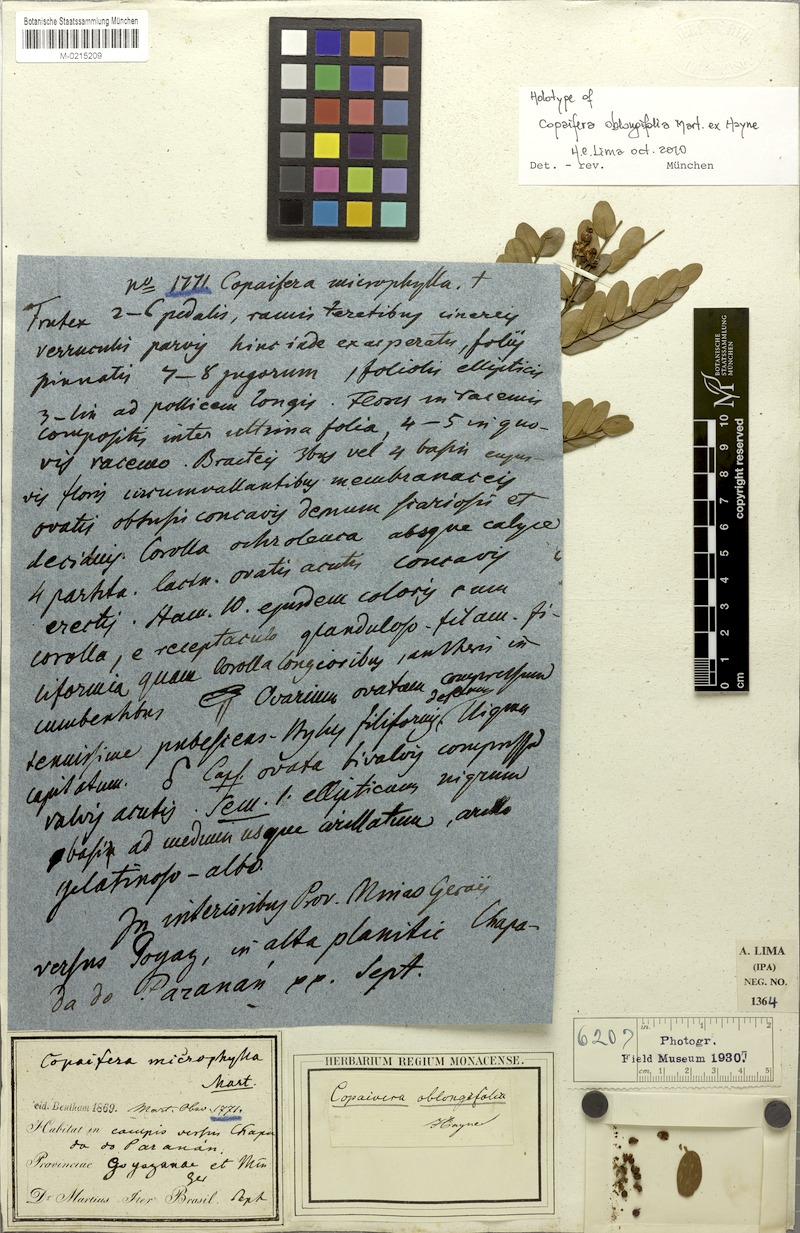 Botanische Staatssammlung München
M-0215209
Holotype of
Copaifera oblongifolia Mart. ex Hayne
H.C. Lima oct. 2010
Det. - rev. München
nº 1771 Copaifera microphylla. †
Frutex 2-6 pedalis, ramis teretibus cinereis
verruculis parvis hinc inde exasperatis, foliis
pinnatis 7-8 jugorum, foliolis ellipticis
3-lin ad pollicem longis. Flores in racemis
compositis inter ultima folia, 4-5 in quo-
vis racemo. Bracteis 3bus vel 4 basin cujus-
vis floris circumvallantibus membranaceis
ovatis obtusis concavis demum scariosis et
deciduis. Corolla ochroleuca absque calyce
4 partita. lacin. ovatis acutis concavis
erectis. Stam. 10. ejusdem coloris cum
corolla, e receptaculo glanduloso - filam. fi-
liformia quam corolla longioribus, antheris in
cumbentibus Ovarium ovatum compressum
tenuissime pubescens - Stylus filiformis, Stigma
capitatum. Caps. ovata bivalvis compressa
valvis acutis. Sem. 1. ellipticum nigrum
basi ad medium usque arillatum, arillo
gelatinoso - albo.
In interioribus Prov. Minas Geraës
versus Goyaz, in alta planitie Chapa-
da do Paranán pp. Sept.
BOTANISCHE
STAATSSAMMLUNG
MÜNCHEN
0 1 2 3 4 5 6 7 8 9 10
cm
copyright reserved
A. LIMA
(IPA)
NEG. NO.
1364
6207
Photogr.
Field Museum 1930.
in. 1 2
cm. 1 2 3 4 5
Copaifera microphylla
Mart.
vid. Bentham 1869. Mart. Obs. 1771.
Habitat in campis versus Chapa
da do Paranán.
Provinciae Goyazanae et Min
Ger
Dr Martius Iter Brasil. Sept
HERBARIUM REGIUM MONACENSE.
Copaivera oblongifolia
Hayne